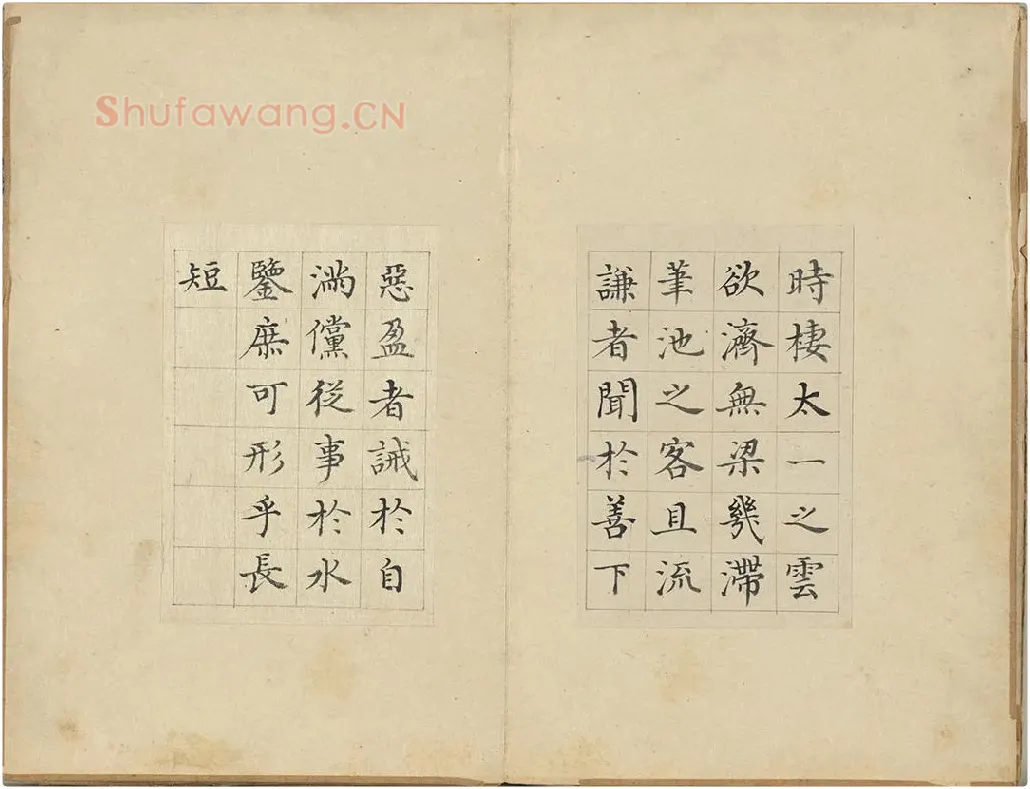 Shufawang.CN
時棲太一之雲
欲濟無梁幾滯
筆池之客且流
謙者聞於善下
惡盈者誡於自
滿儻從事於水
鑒庶可形乎長
短